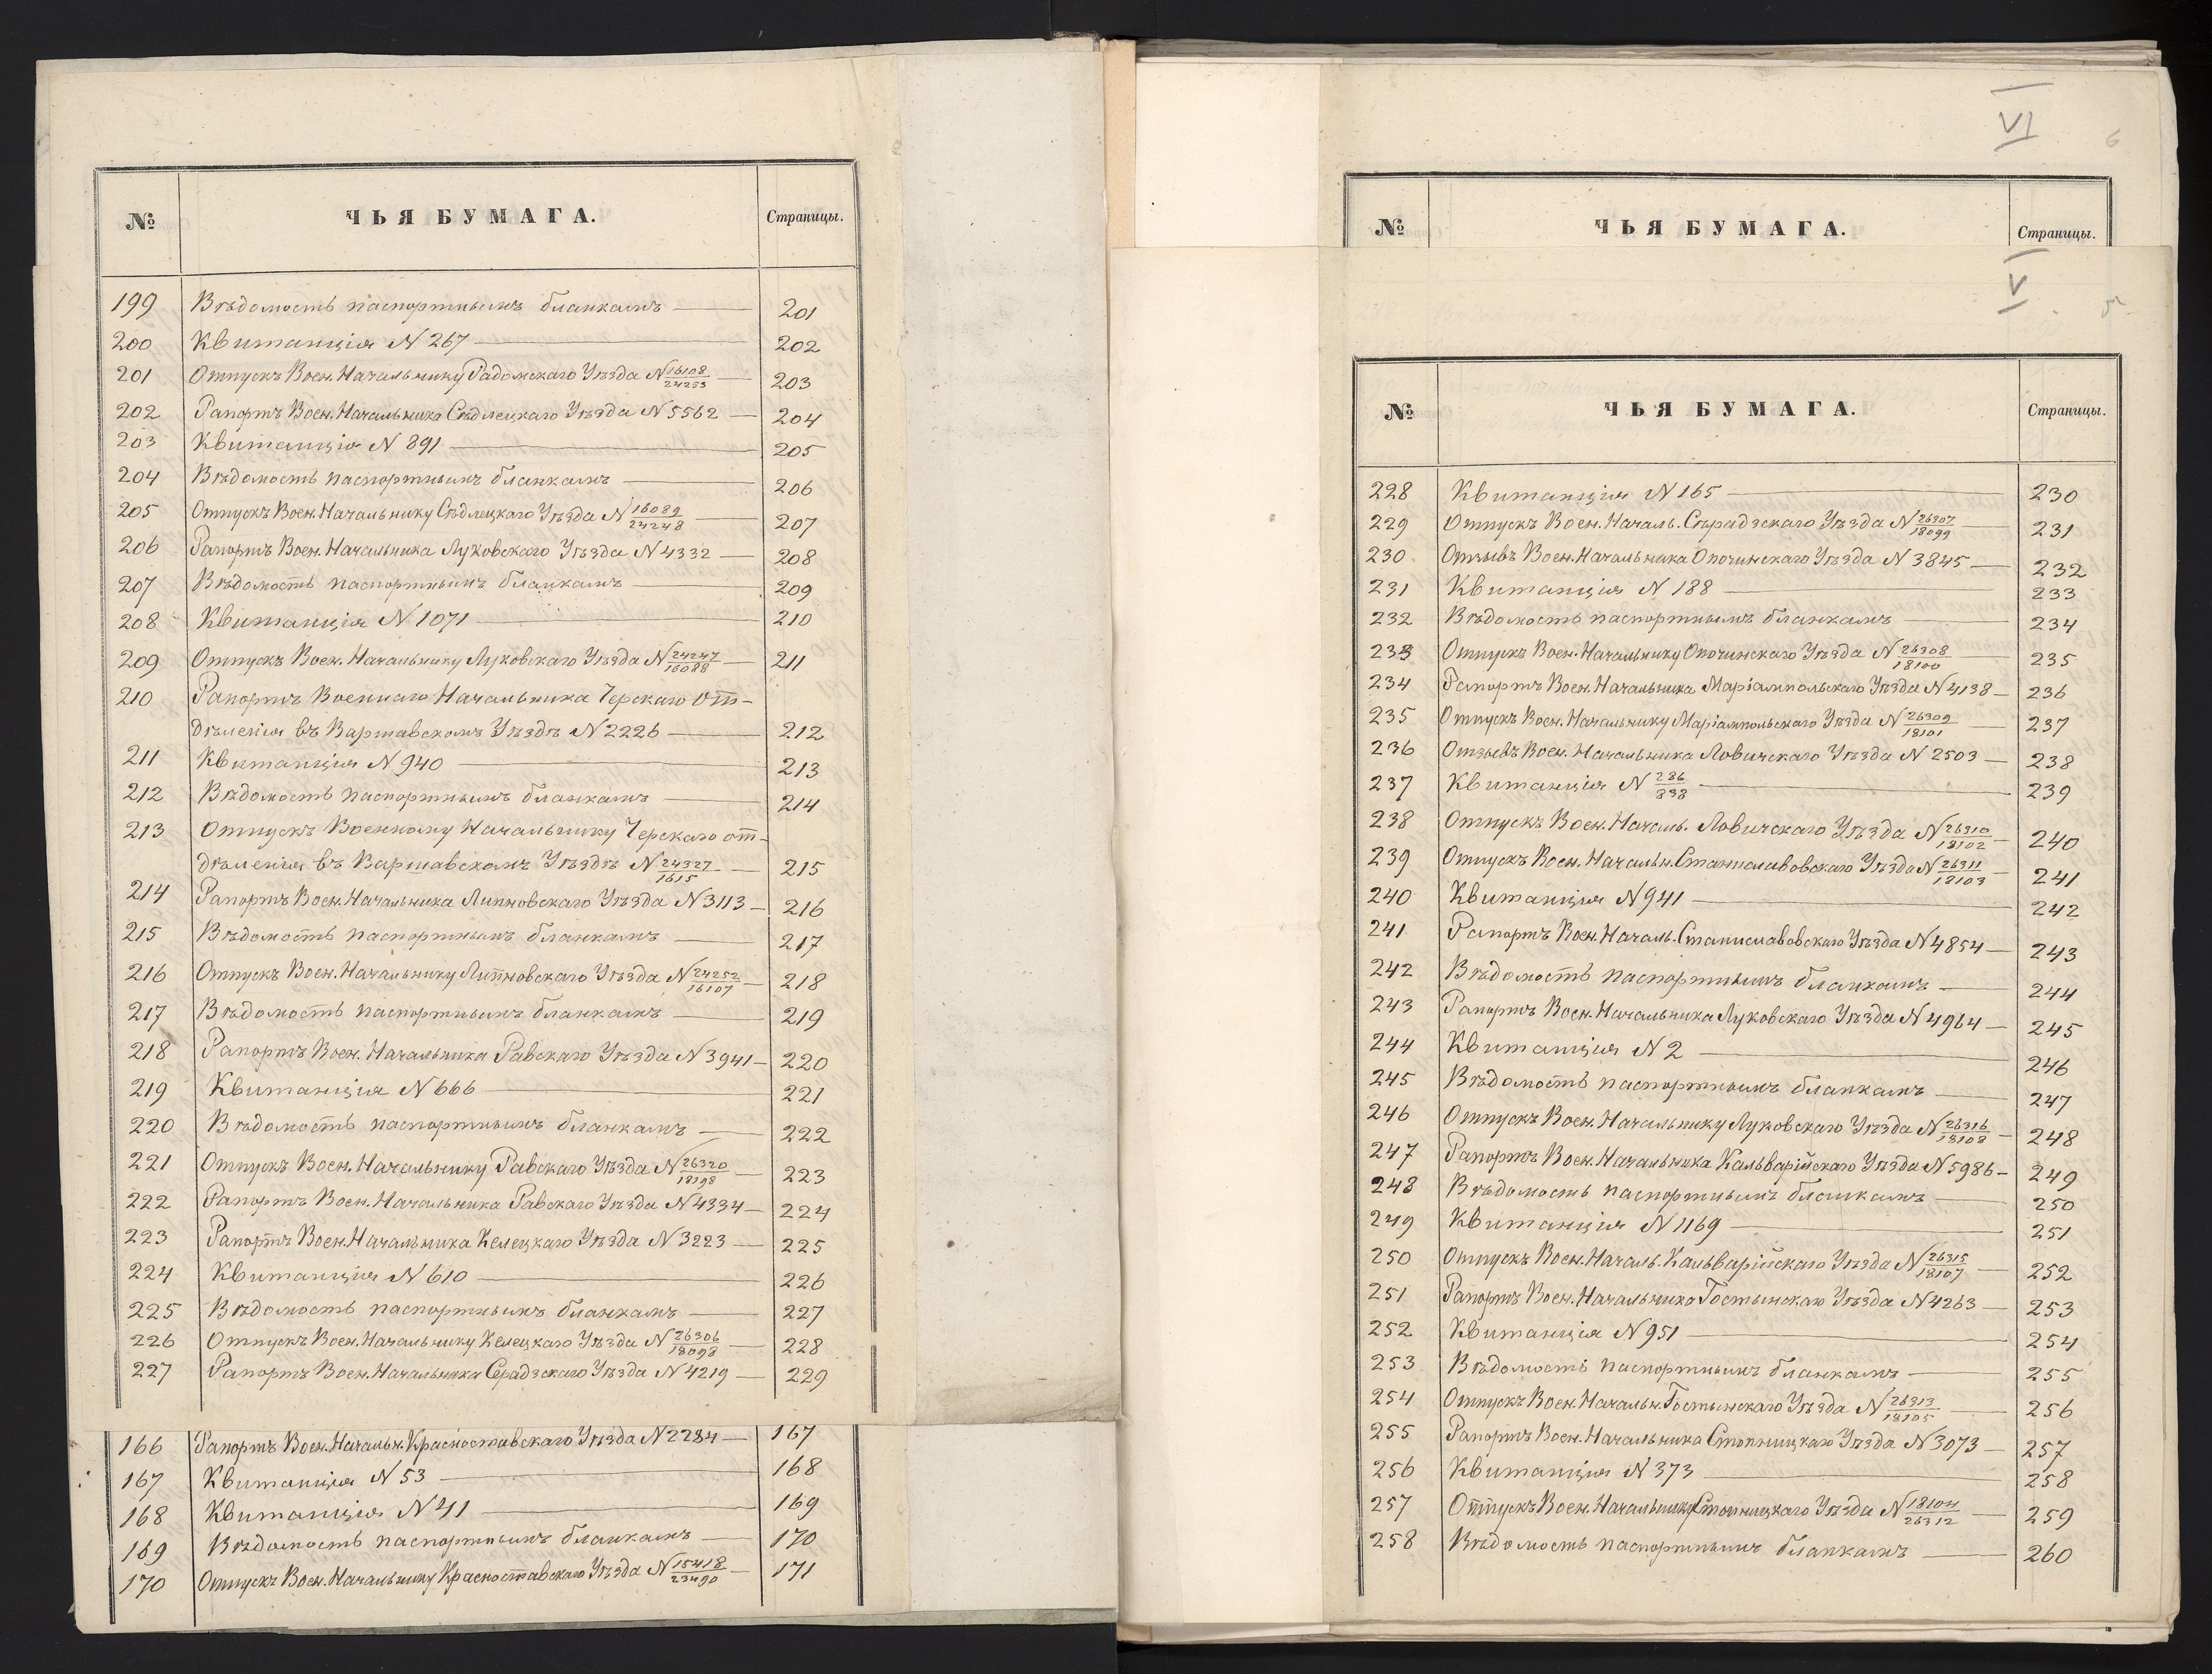 № ЧЬЯ БУМАГА. Страницы.
199 Вѣдомость паспортнымъ бланкамъ 201
200 Квитанція N 267 202
201 Отпускъ Воен. Начальнику Радомскаго Уѣзда N 16108/24253 203
202 Рапортъ Воен. Начальника Сѣдлецкаго Уѣзда N 5562 204
203 Квитанція N 891 205
204 Вѣдомость паспортнымъ бланкамъ 206
205 Отпускъ Воен. Начальнику Сѣдлецкаго Уѣзда N 16089/24248 207
206 Рапортъ Воен. Начальника Луковскаго Уѣзда N 4332 208
207 Вѣдомость паспортнымъ бланкамъ 209
208 Квитанція N 1071 210
209 Отпускъ Воен. Начальнику Луковскаго Уѣзда N 24247/16088 211
210 Рапортъ Военнаго Начальника Черскаго От-
дѣленія въ Варшавскомъ Уѣздѣ N 2226 212
211 Квитанція N 940 213
212 Вѣдомость паспортнымъ бланкамъ 214
213 Отпускъ Военному Начальнику Черскаго от-
дѣленія въ Варшавскомъ Уѣздѣ N 24327/1615 215
214 Рапортъ Воен. Начальника Липновскаго Уѣзда N 3113 216
215 Вѣдомость паспортнымъ бланкамъ 217
216 Отпускъ Воен. Начальнику Липновскаго Уѣзда N 24252/16107 218
217 Вѣдомость паспортнымъ бланкамъ 219
218 Рапортъ Воен. Начальника Равскаго Уѣзда N 3941 220
219 Квитанція N 666 221
220 Вѣдомость паспортнымъ бланкамъ 222
221 Отпускъ Воен. Начальнику Равскаго Уѣзда N 26320/18198 223
222 Рапортъ Воен. Начальника Равскаго Уѣзда N 4334 224
223 Рапортъ Воен. Начальника Келецкаго Уѣзда N 3223 225
224 Квитанція N 610 226
225 Вѣдомость паспортнымъ бланкамъ 227
226 Отпускъ Воен. Начальнику Келецкаго Уѣзда N 26306/18098 228
227 Рапортъ Воен. Начальника Серадзскаго Уѣзда N 4219 229
166 Рапортъ Воен. Начальн. Красноставскаго Уѣзда N 2284 167
167 Квитанція N 53 168
168 Квитанція N 41 169
169 Вѣдомость паспортнымъ бланкамъ 170
170 Отпускъ Воен. Начальнику Красноставскаго Уѣзда N 15418/23490 171
VI 6
№ ЧЬЯ БУМАГА. Страницы.
V 5
№ ЧЬЯ БУМАГА. Страницы.
228 Квитанція N 165 230
229 Отпускъ Воен. Началь. Сѣрадзскаго Уѣзда N 26307/18099 231
230 Отзывъ Воен. Начальника Опочинскаго Уѣзда N 3845 232
231 Квитанція N 188 233
232 Вѣдомость паспортнымъ бланкамъ 234
233 Отпускъ Воен. Начальнику Опочинскаго Уѣзда N 26308/18100 235
234 Рапортъ Воен. Начальника Маріампольскаго Уѣзда N 4138 236
235 Отпускъ Воен. Начальнику Маріампольскаго Уѣзда N 26309/18101 237
236 Отзывъ Воен. Начальника Ловичскаго Уѣзда N 2503 238
237 Квитанція N 286/338 239
238 Отпускъ Воен. Началь. Ловичскаго Уѣзда N 26310/18102 240
239 Отпускъ Воен. Начальн. Станиславовскаго Уѣзда N 26311/18103 241
240 Квитанція N 941 242
241 Рапортъ Воен. Началь. Станиславовскаго Уѣзда N 4854 243
242 Вѣдомость паспортнымъ бланкамъ 244
243 Рапортъ Воен. Начальника Луковскаго Уѣзда N 4964 245
244 Квитанція N 2 246
245 Вѣдомость паспортнымъ бланкамъ 247
246 Отпускъ Воен. Начальнику Луковскаго Уѣзда N 26316/18108 248
247 Рапортъ Воен. Начальника Кальварійскаго Уѣзда N 5986 249
248 Вѣдомость паспортнымъ бланкамъ 250
249 Квитанція N 1169 251
250 Отпускъ Воен. Началь. Кальварійскаго Уѣзда N 26315/18107 252
251 Рапортъ Воен. Начальника Гостынскаго Уѣзда N 4263 253
252 Квитанція N 951 254
253 Вѣдомость паспортнымъ бланкамъ 255
254 Отпускъ Воен. Начальн. Гостынскаго Уѣзда N 26313/18105 256
255 Рапортъ Воен. Начальника Стопницкаго Уѣзда N 3073 257
256 Квитанція N 373 258
257 Отпускъ Воен. Начальнику Стопницкаго Уѣзда N 18104/26312 259
258 Вѣдомость паспортнымъ бланкамъ 260